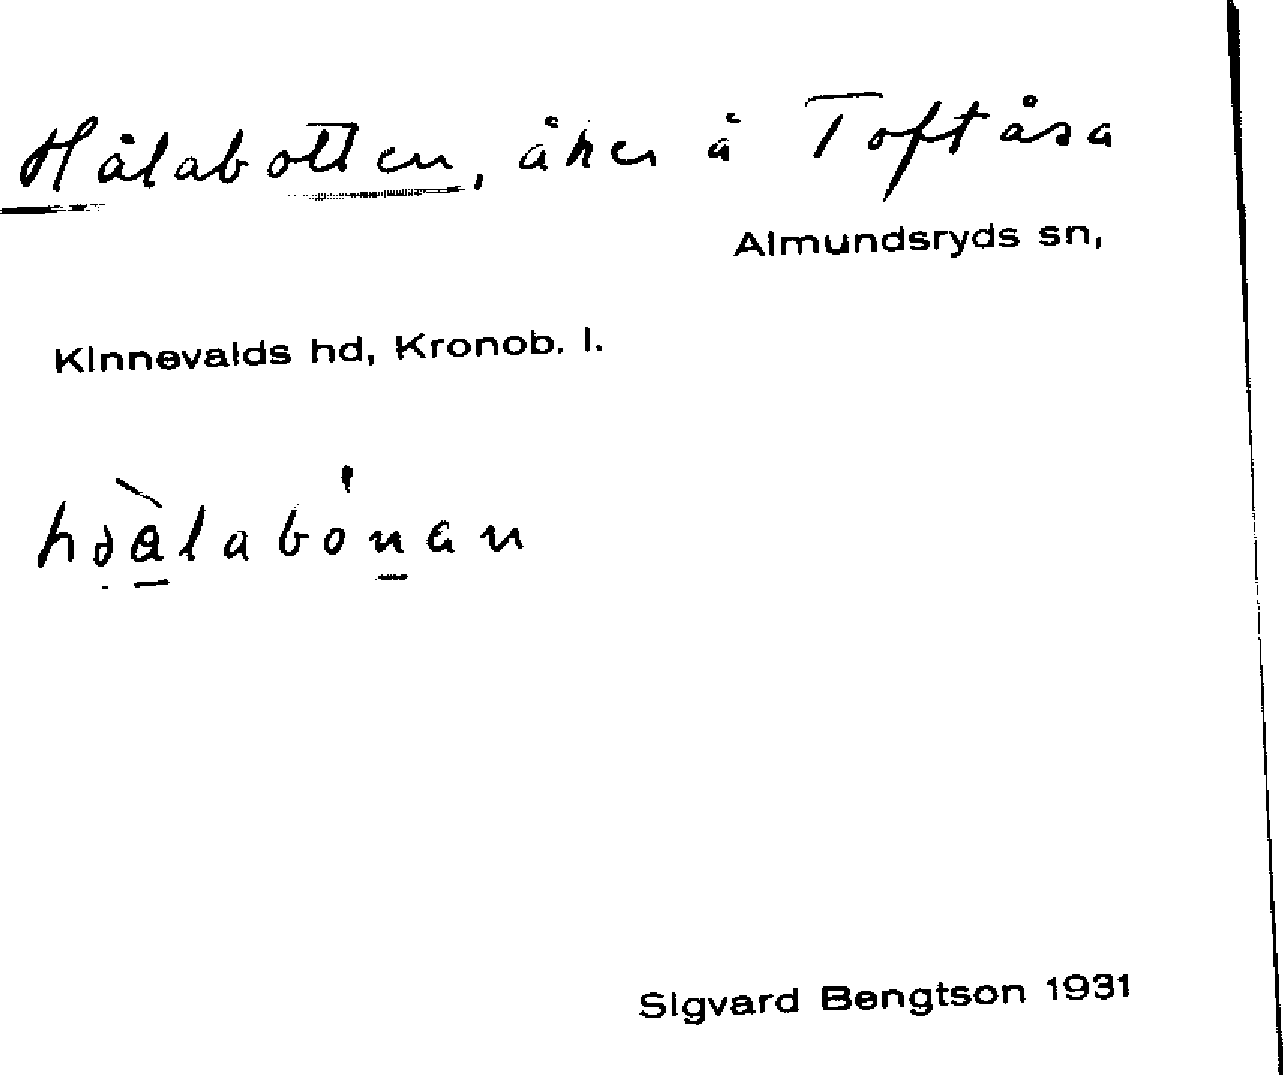 Hålabotten, åker å Toftåsa
Almundsryds sn,
Kinnevalds hd, Kronob. l.
Sigvard Bengtson 1931